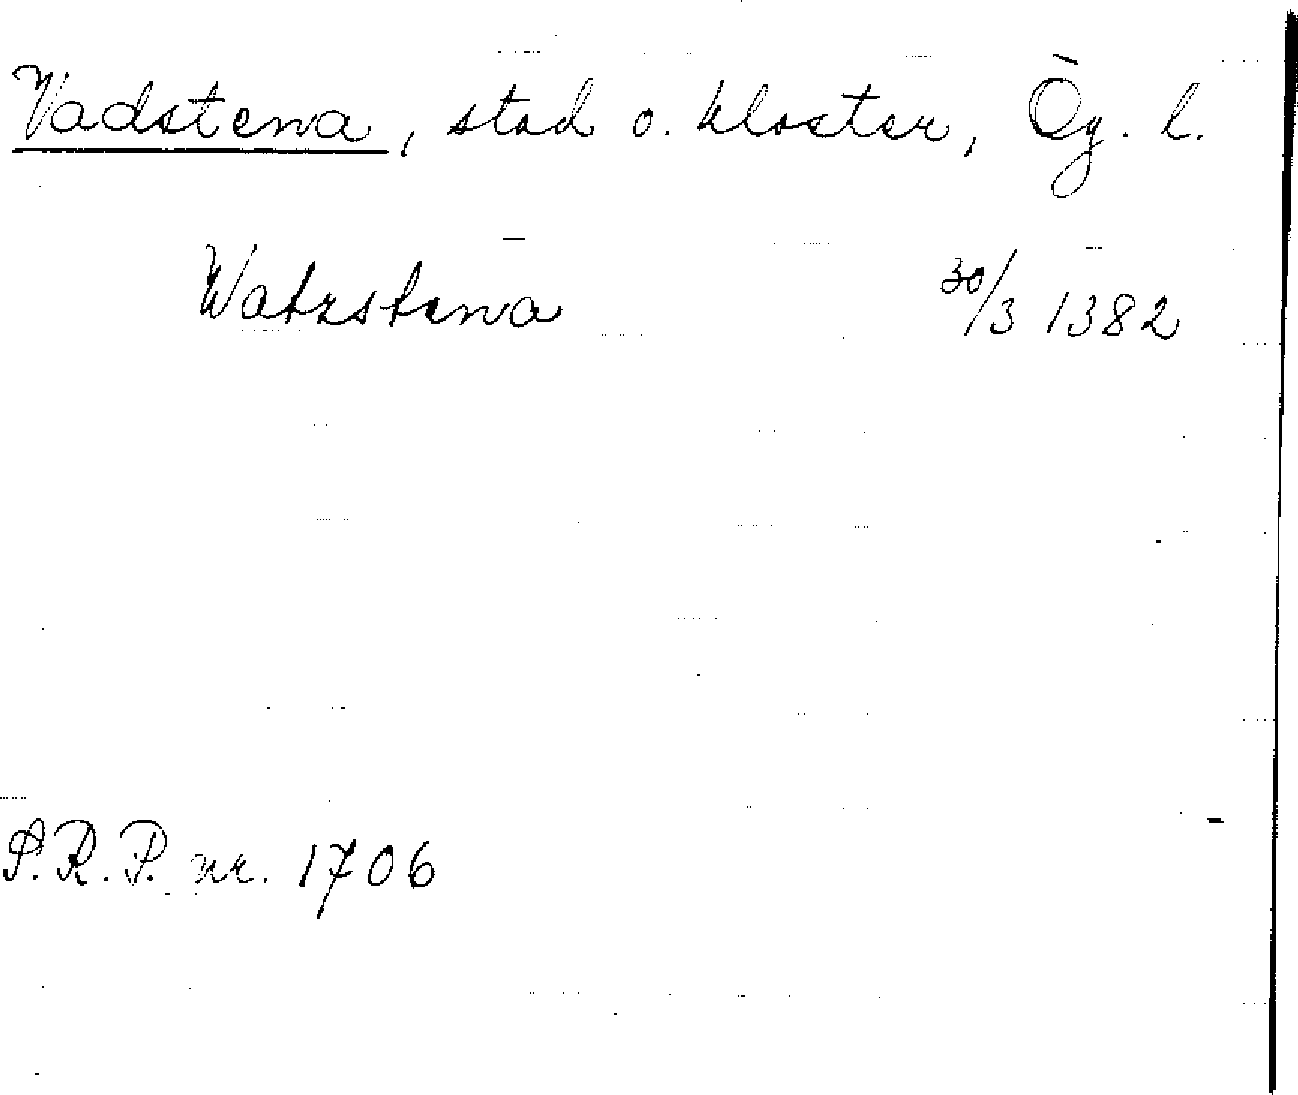 Vadstena, stad o. kloster, Ög. l.
Watzstena 30/3 1382
S.R.P. nr. 1706